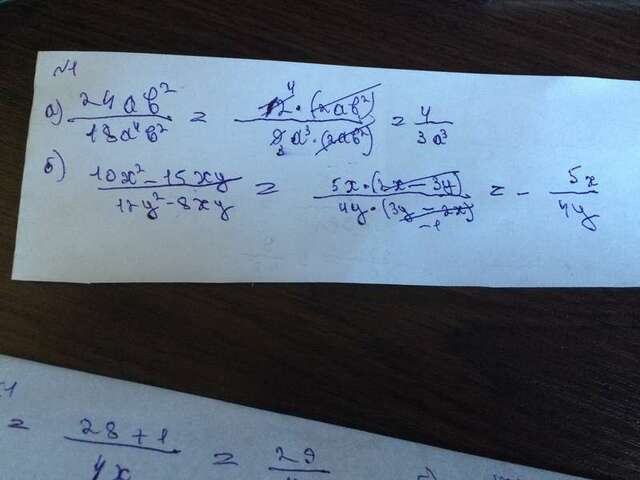 №1
а) 24ab² / 18a⁴b² = 12⁴ · (2ab²) / 9₃a³ · (2ab²) = 4 / 3a³
б) 10x² - 15xy / 12y² - 8xy = 5x · (2x - 3y) / 4y · (3y - 2x) -1 = - 5x / 4y
= 28 + 1 / 4x = 29